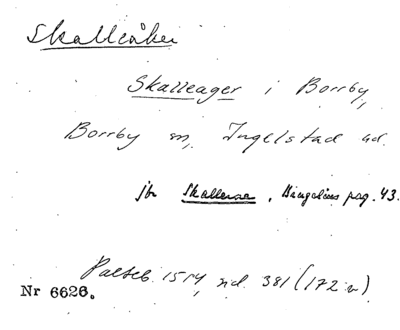 Skalleåker
Skalleager i Borrby,
Borrby sn, Ingelstad hd.
jvr Skallerne, pag. 43.
1514, sid. 381 (172 v)
Nr 6626.